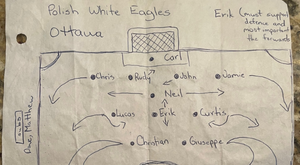 Polish White Eagles
Ottawa
Erik (must support
defence and
most important
the forwards
Carl
Chris
Rudy
John
Jamie
Neil
Lucas
Erik
Curtis
Christian
Giuseppe
Subs
Matthew